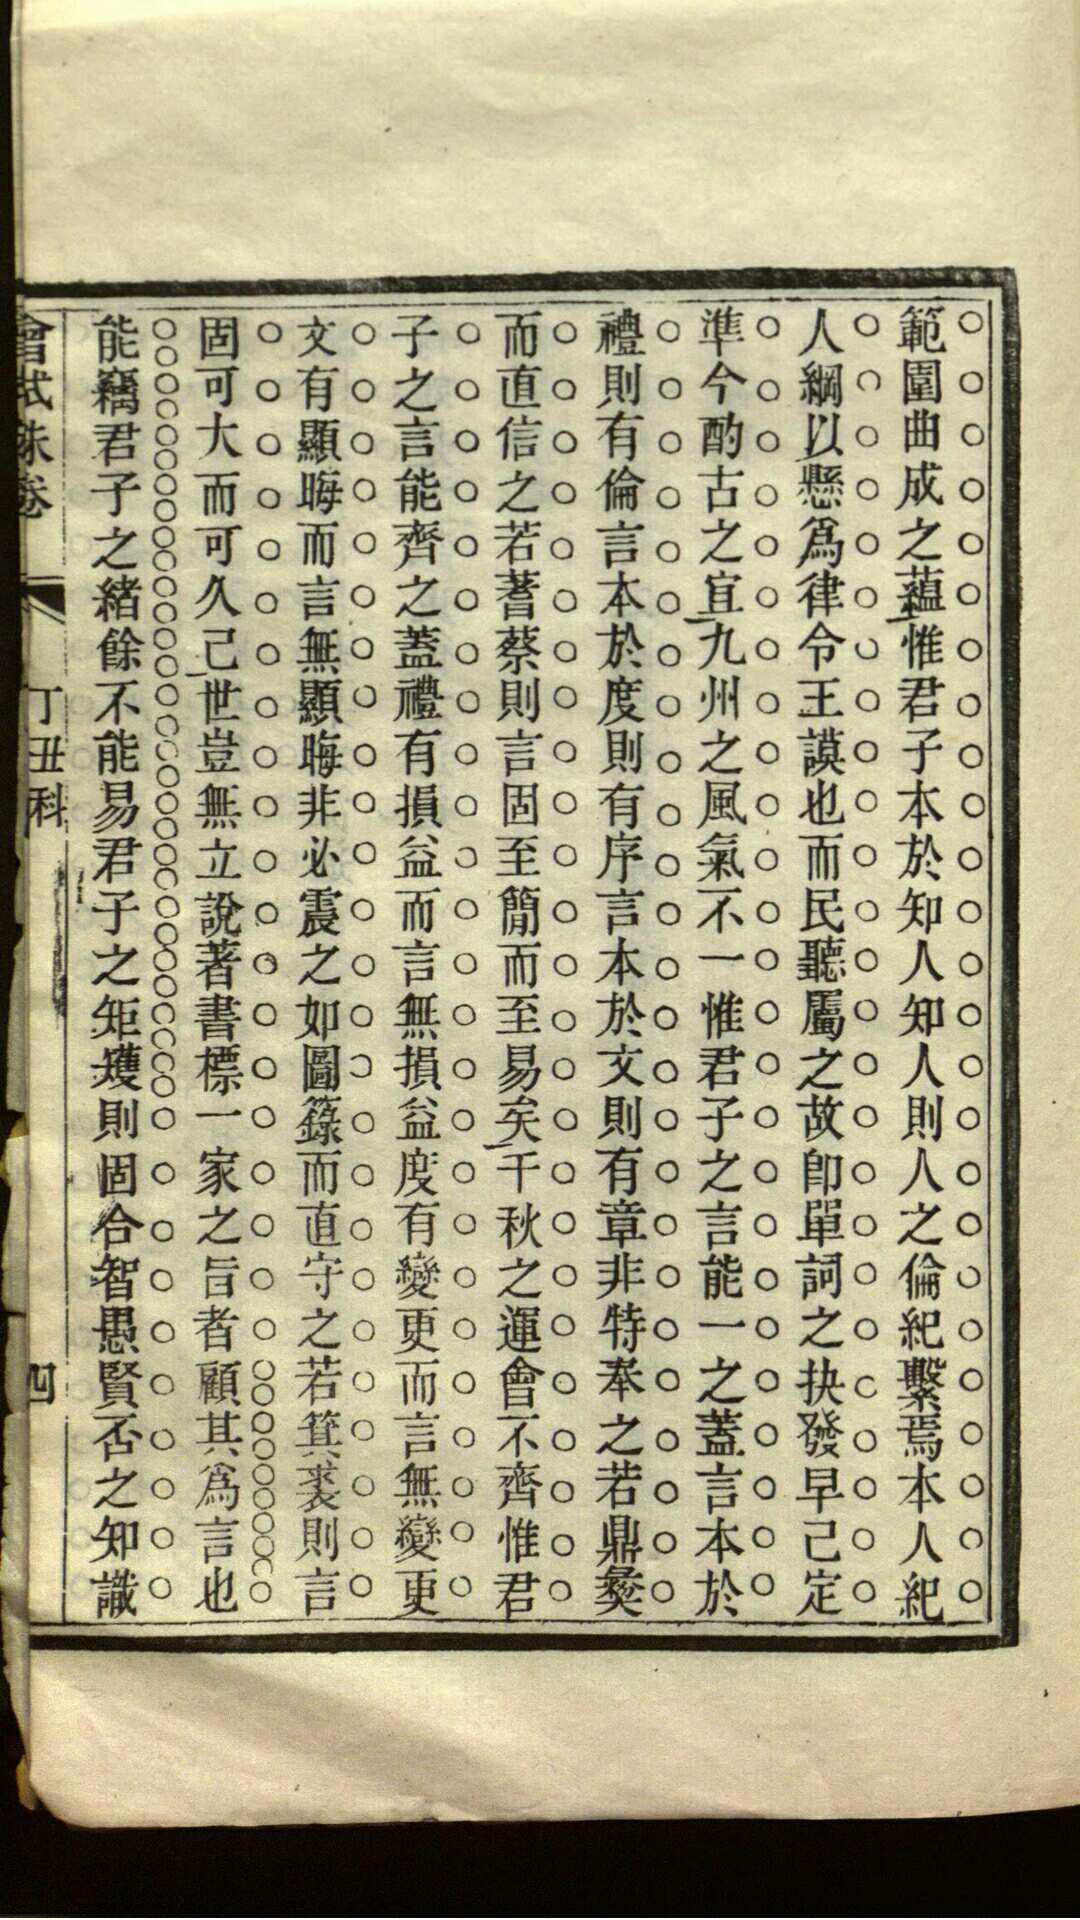 範圍曲成之蘊惟君子本於知人知人則人之倫紀繫焉本人紀
人綱以懸爲律令王謨也而民聽屬之故即單詞之抉發早己定
準今酌古之宜九州之風氣不一惟君子之言能一之蓋言本於
禮則有倫言本於度則有序言本於文則有章非特奉之若鼎彜
而直信之若蓍蔡則言固至簡而至易矣千秋之運會不齊惟君
子之言能齊之蓋禮有損益而言無損益度有變更而言無變更
文有顯晦而言無顯晦非必震之如圖籙而直守之若箕裘則言
固可大而可久己世豈無立說著書標一家之旨者顧其爲言也
能竊君子之緒餘不能易君子之矩矱則固合智愚賢否之知識
會試硃卷 丁丑科 四